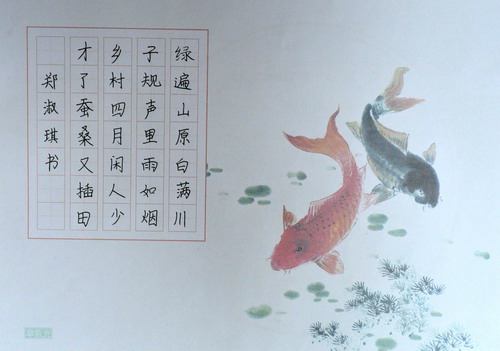 绿遍山原白满川
子规声里雨如烟
乡村四月闲人少
才了蚕桑又插田
郑淑琪书